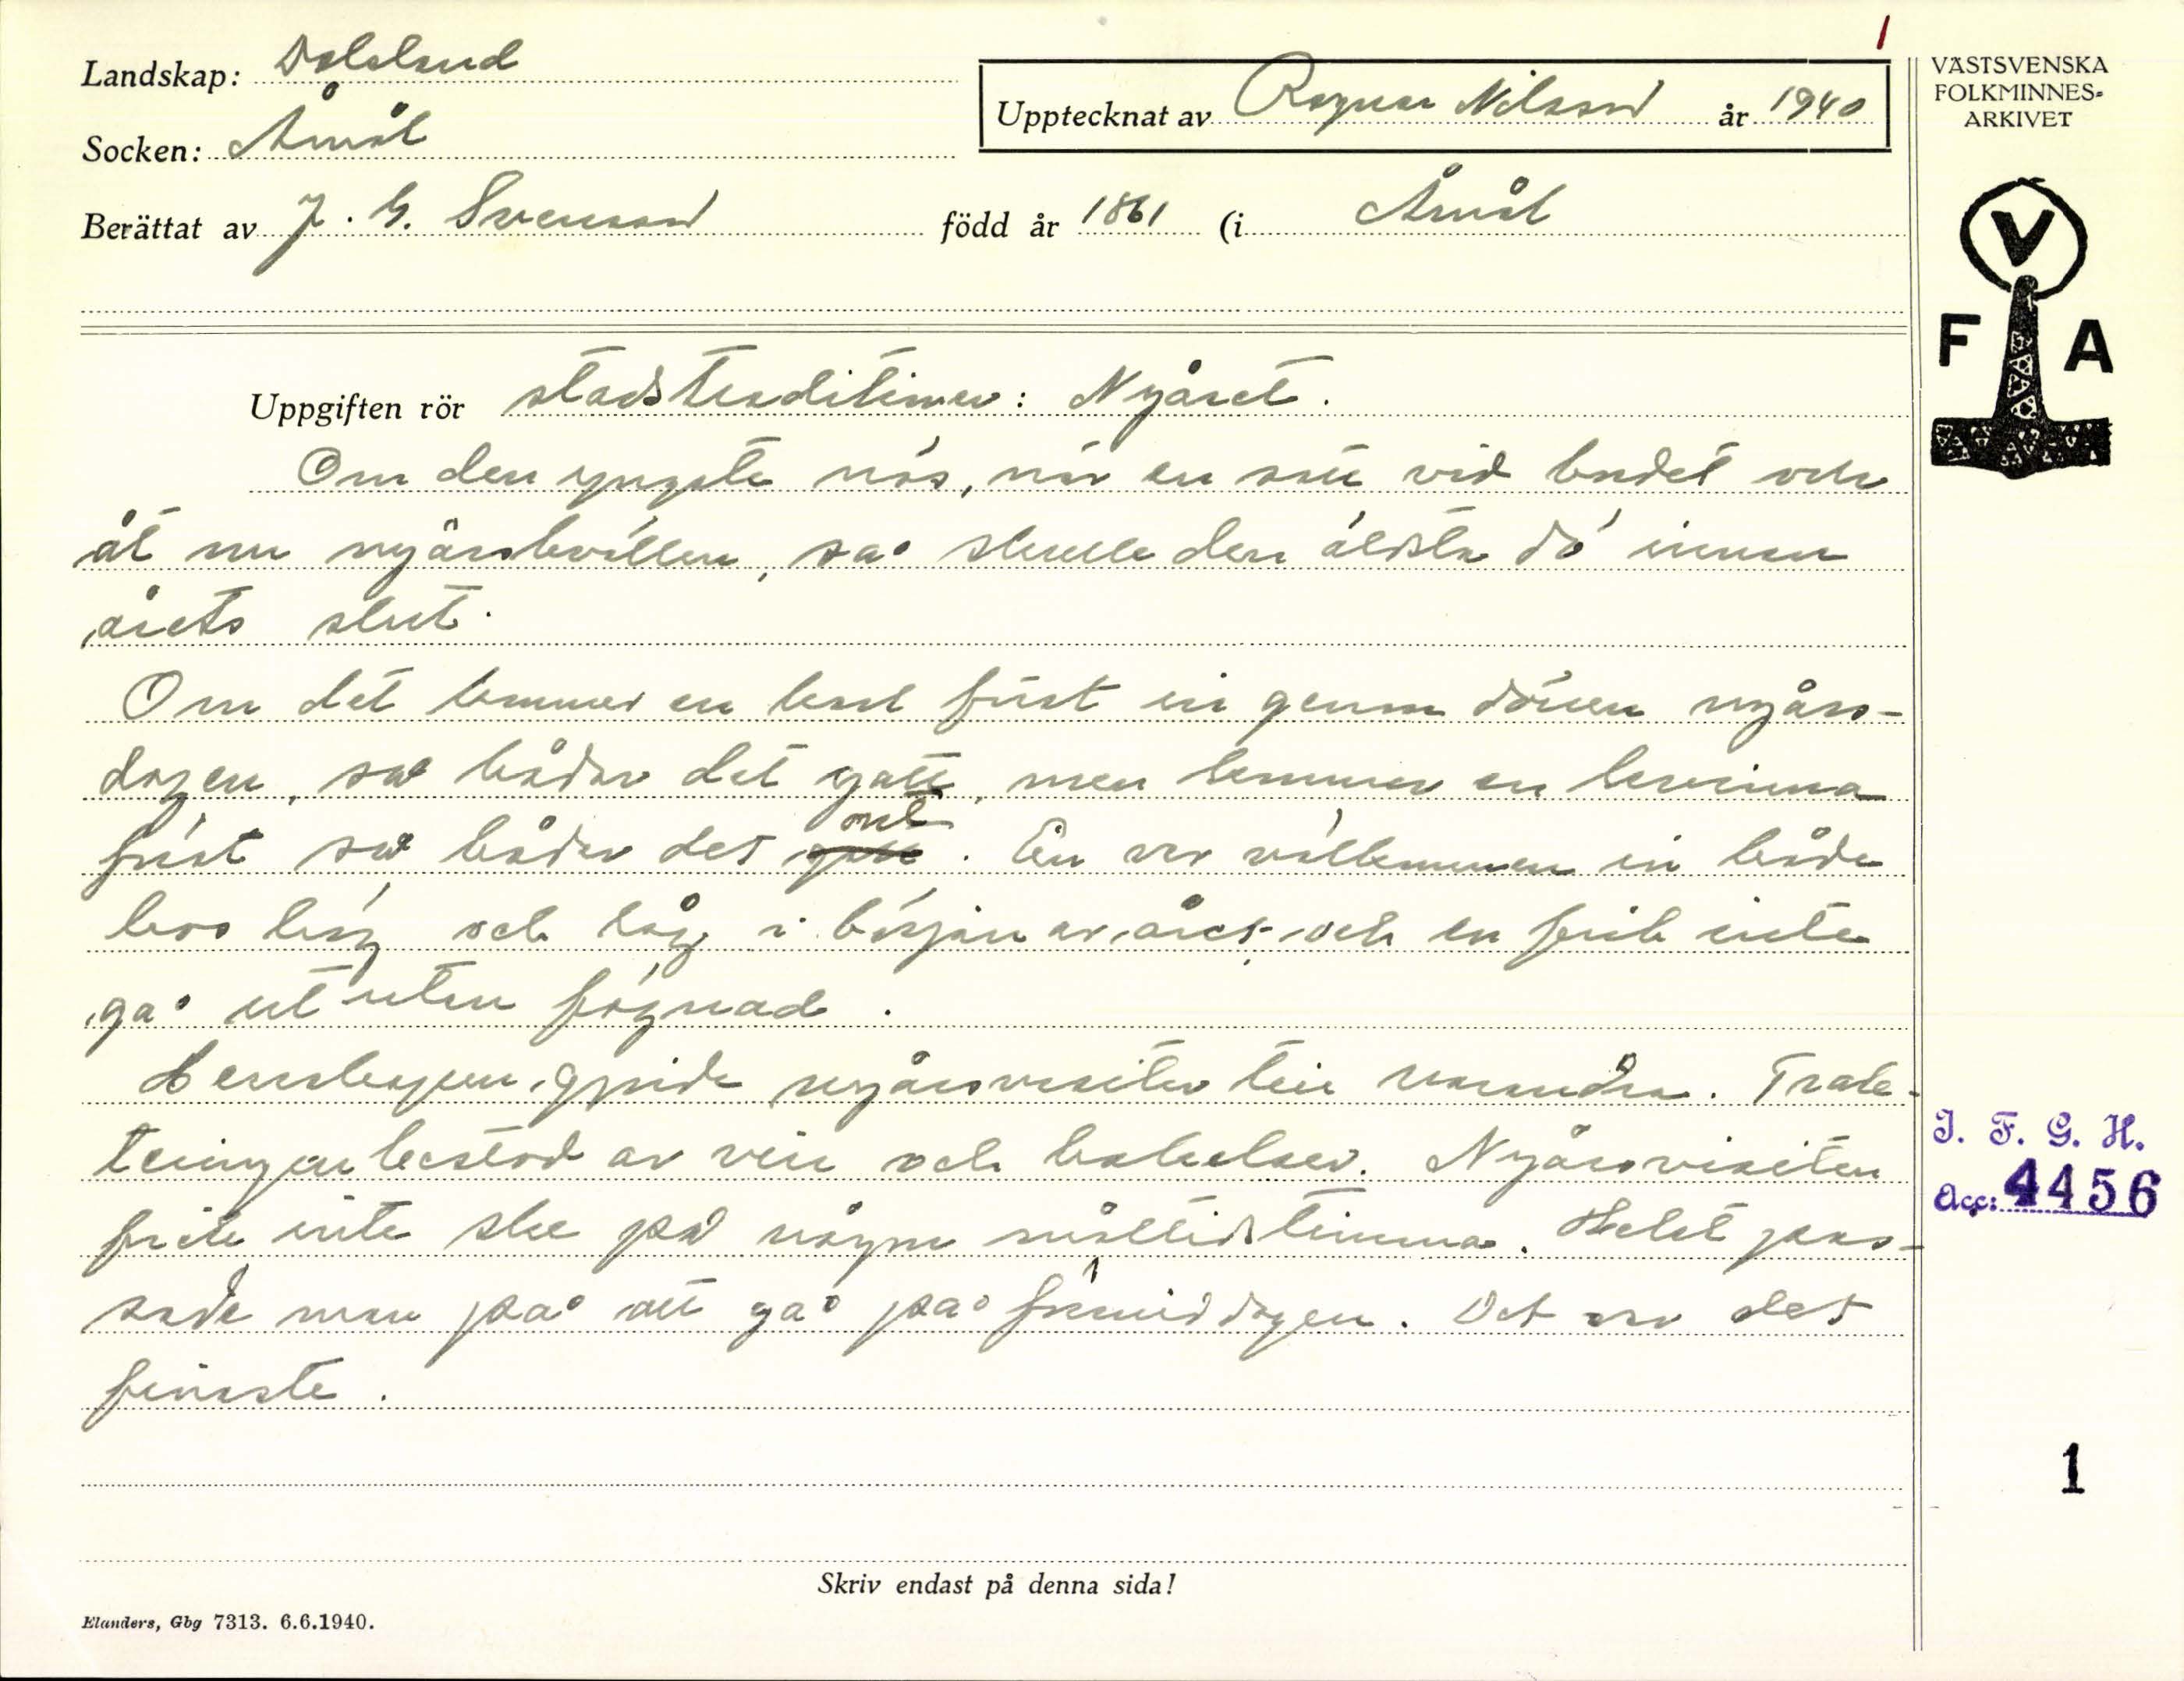 1
Landskap: Dalsland
Upptecknat av Ragnar Nilsson år 1940
Socken: Åmål
Berättat av J. G. Svensson född år 1861 (i Åmål
VÄSTSVENSKA
FOLKMINNES-
ARKIVET
V
F A
Uppgiften rör stadstraditioner: Nyåret.
Om den yngste nös, när en satt vid bordet och
åt nu nyårskvällen, så skulle den älsta dö innan
årets slut.
Om det kommer en karl först in genom dörren nyårs-
dagen, så bådar det gott, men kommer en kvinna
först så bådar det ont. En var välkommen in både
hos hög och låg i början av året och en fick inte
gå ut utan fögnad.
Herrskapen gjorde nyårsvisiter hos varandra. Trak-
teringen bestod av vin och bakelser. Nyårsvisiten
fick inte ske på någon måltidstimma. Helst pas-
sade man på att gå på förmiddagen. Det var det
finaste.
I. F. G. H.
Acc: 4456
1
Skriv endast på denna sida!
Elanders, Gbg 7313. 6.6.1940.